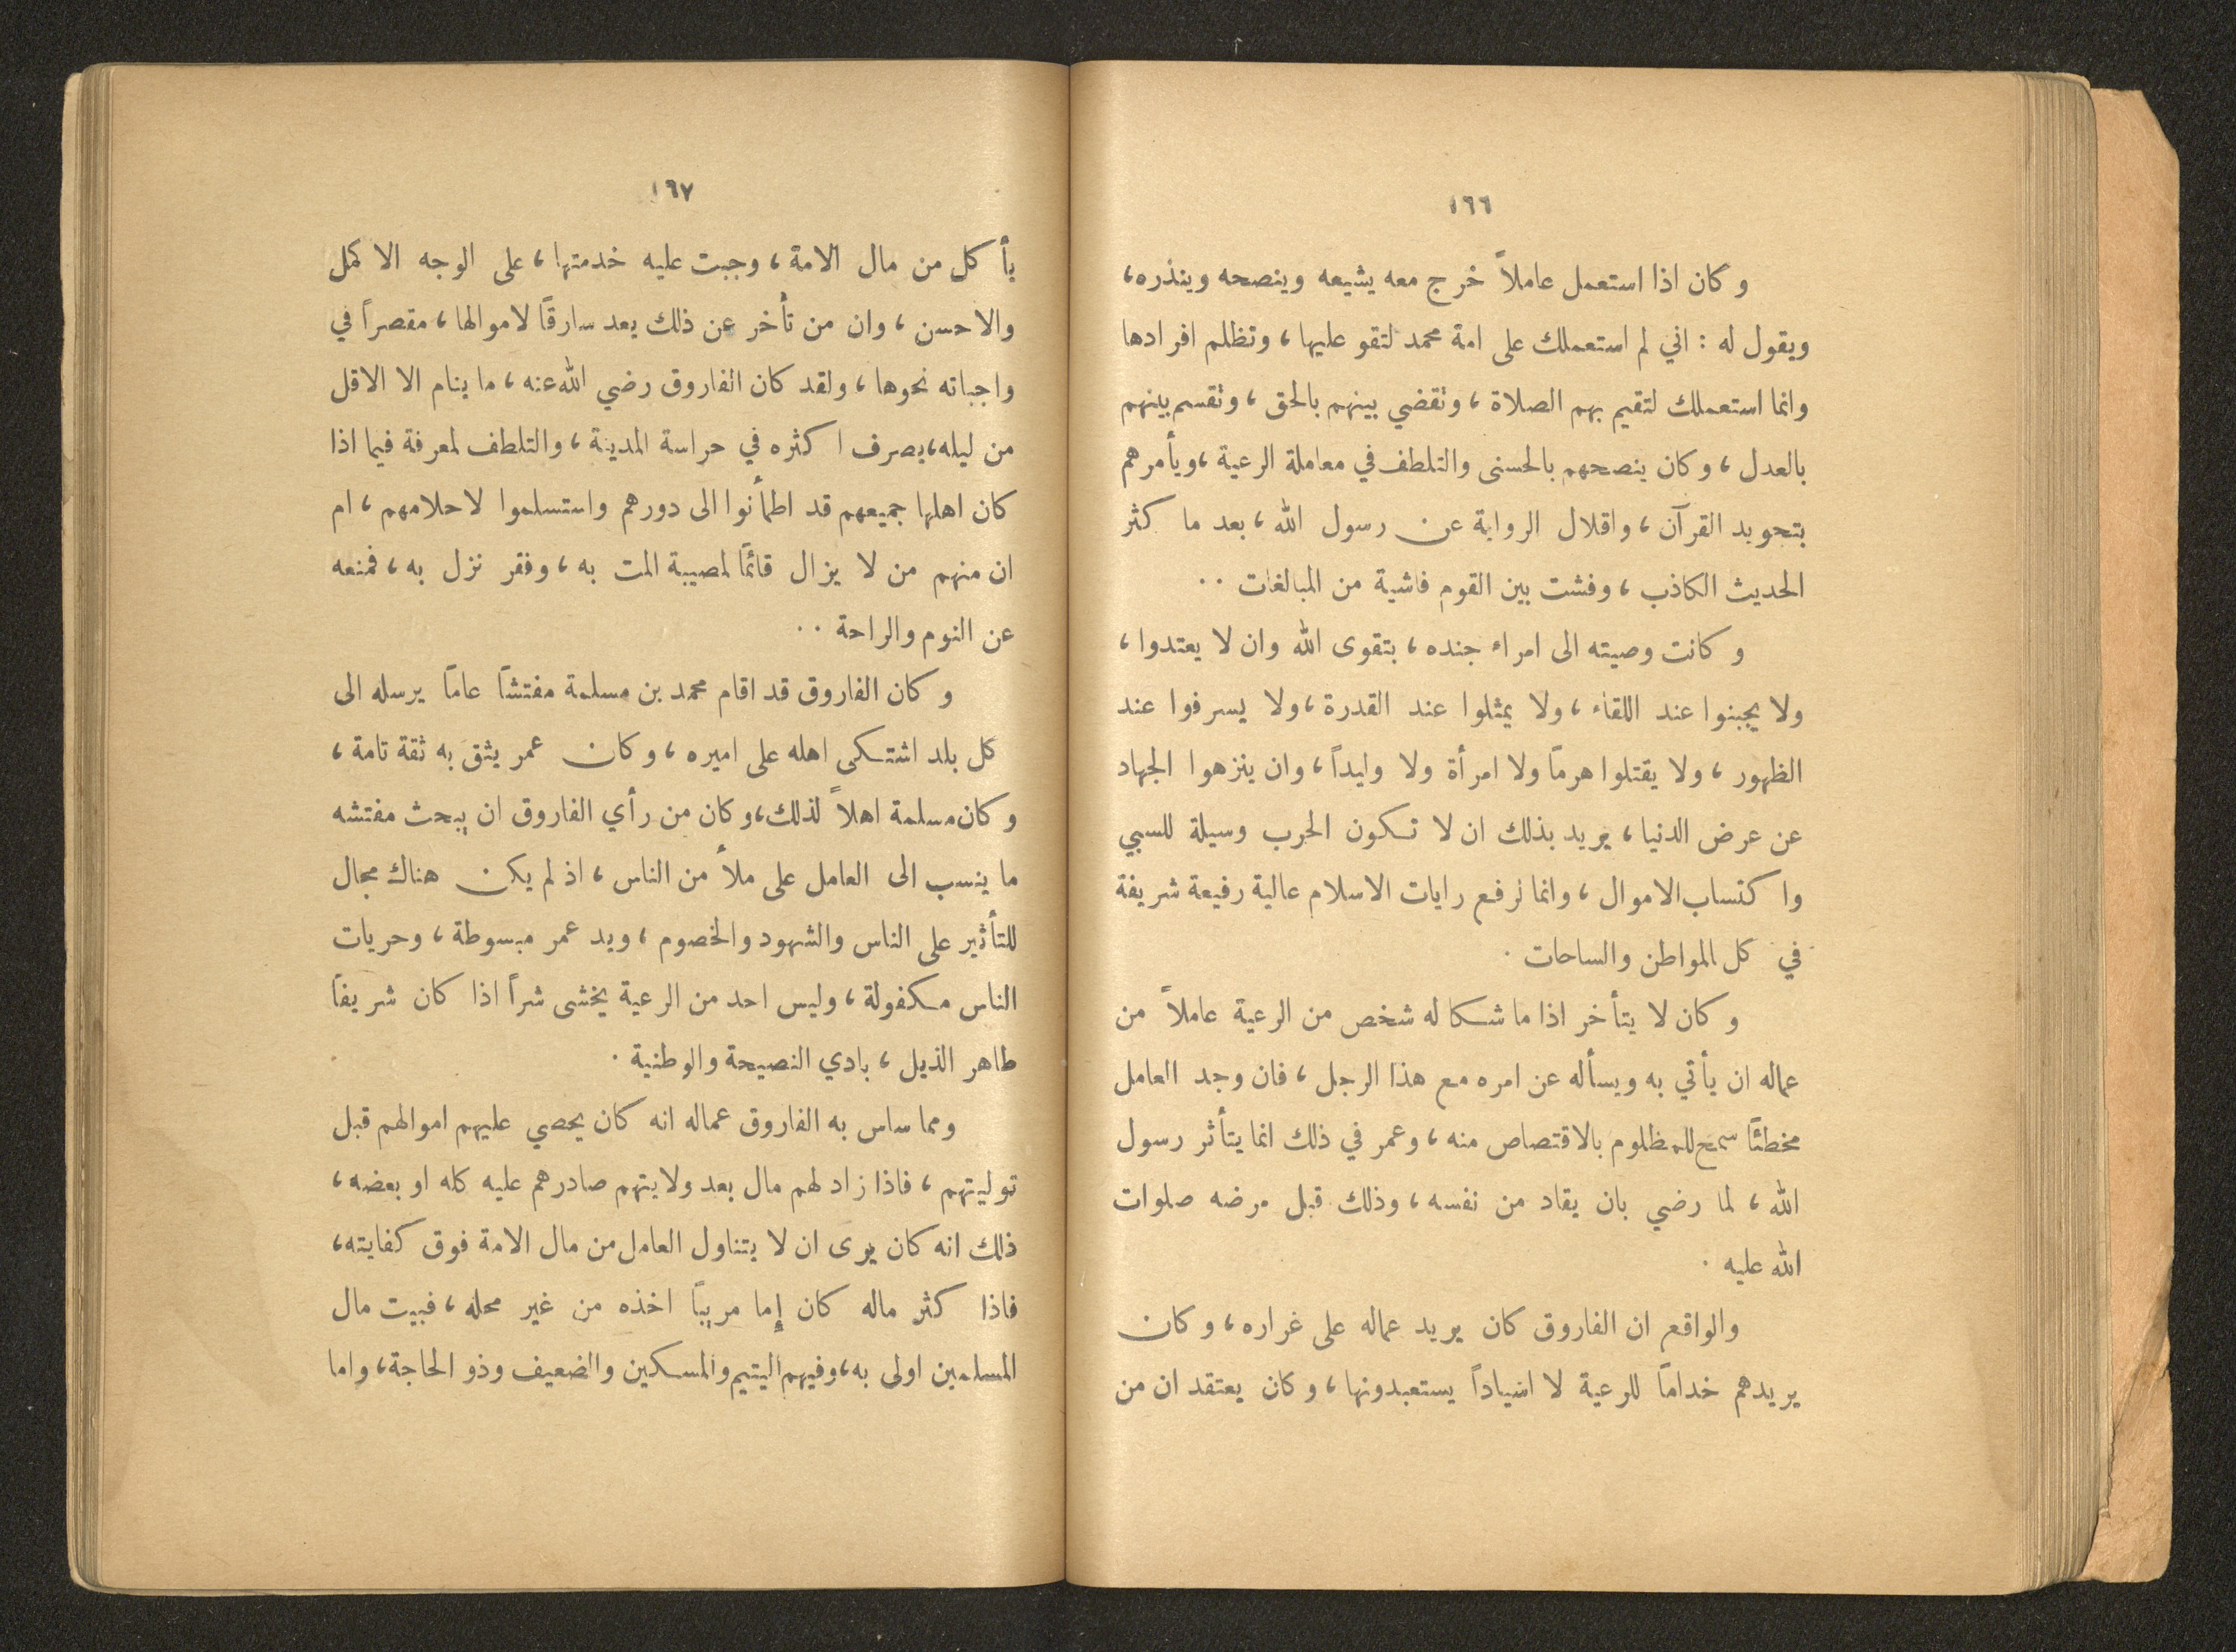 ١٦٦
وكان اذا استعمل عاملاً خرج معه يشيعه وينصحه وينذره،
ويقول له : اني لم استعملك على امة محمد لتقو عليها ، وتظلم افرادها
وانما استعملك لتقيم بهم الصلاة ، وتقضي بينهم بالحق ، وتقسم بينهم
بالعدل ، وكان ينصحهم بالحسنى والتلطف في معاملة الرعية ، ويأمرهم
بتجويد القرآن ، واقلال الرواية عن رسول الله ، بعد ما كثر
الحديث الكاذب ، وفشت بين القوم فاشية من المبالغات ..
وكانت وصيته الى امراء جنده ، بتقوى الله وان لا يعتدوا ،
ولا يجبنوا عند اللقاء ، ولا يمثلوا عند القدرة ، ولا يسرفوا عند
الظهور ، ولا يقتلوا هرماً ولا امرأة ولا وليداً ، وان ينزهوا الجهاد
عن عرض الدنيا ، يريد بذلك ان لا تكون الحرب وسيلة للسبي
واكتساب الاموال ، وانما لرفع رايات الاسلام عالية رفيعة شريفة
في كل المواطن والساحات .
وكان لا يتأخر اذا ما شكا له شخص من الرعية عاملاً من
عماله ان يأتي به ويسأله عن امره مع هذا الرجل ، فان وجد العامل
مخطئاً سمح للمظلوم بالاقتصاص منه ، وعمر في ذلك انما يتأثر رسول
الله ، لما رضي بان يقاد من نفسه ، وذلك قبل مرضه صلوات
الله عليه .
والواقع ان الفاروق كان يريد عماله على غراره ، وكان
يريدهم خداماً للرعية لا اسياداً يستعبدونها ، وكان يعتقد ان من
١٦٧
يأكل من مال الامة ، وجبت عليه خدمتها ، على الوجه الاكمل
والاحسن ، وان من تأخر عن ذلك يعد سارقاً لاموالها ، مقصراً في
واجباته نحوها ، ولقد كان الفاروق رضي الله عنه ، ما ينام الا الاقل
من ليله، يصرف اكثره في حراسة المدينة ، والتلطف لمعرفة فيما اذا
كان اهلها جميعهم قد اطمأنوا الى دورهم واستسلموا لاحلامهم ، ام
ان منهم من لا يزال قائماً لمصيبة المت به ، وفقر نزل به ، فمنعه
عن النوم والراحة ..
وكان الفاروق قد اقام محمد بن مسلمة مفتشاً عاماً يرسله الى
كل بلد اشتكى اهله على اميره ، وكان عمر يثق به ثقة تامة ،
وكان مسلمة اهلاً لذلك، وكان من رأي الفاروق ان يبحث مفتشه
ما ينسب الى العامل على ملأ من الناس ، اذ لم يكن هناك مجال
للتأثير على الناس والشهود والخصوم ، ويد عمر مبسوطة ، وحريات
الناس مكفولة ، وليس احد من الرعية يخشى شراً اذا كان شريفاً
طاهر الذيل ، بادي النصيحة والوطنية .
ومما ساس به الفاروق عماله انه كان يحصي عليهم اموالهم قبل
توليتهم ، فاذا زاد لهم مال بعد ولايتهم صادرهم عليه كله او بعضه ،
ذلك انه كان يرى ان لا يتناول العامل من مال الامة فوق كفايته ،
فاذا كثر ماله كان إما مريباً اخذه من غير محله ، فبيت مال
المسلمين اولى به، وفيهم اليتيم والمسكين والضعيف وذو الحاجة، واما